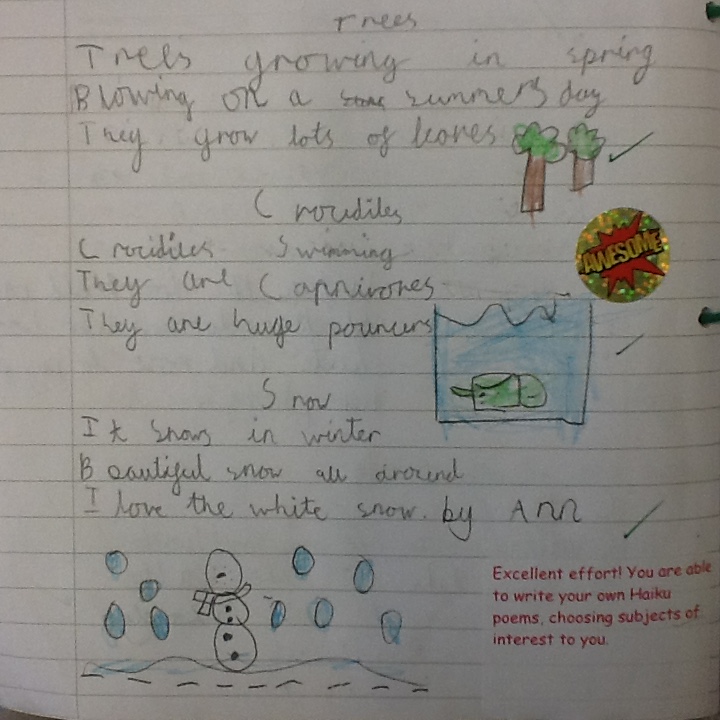 Trees
Trees growing in spring
Blowing on a summers day
They grow lots of leaves
Crocidiles
AWESOME
Crocidiles Swimming
They are Carnivores
They are huge pouncers
Snow
It snows in winter
Beautiful snow all around
I love the white snow. by Ann
Excellent effort! You are able
to write your own Haiku
poems, choosing subjects of
interest to you.